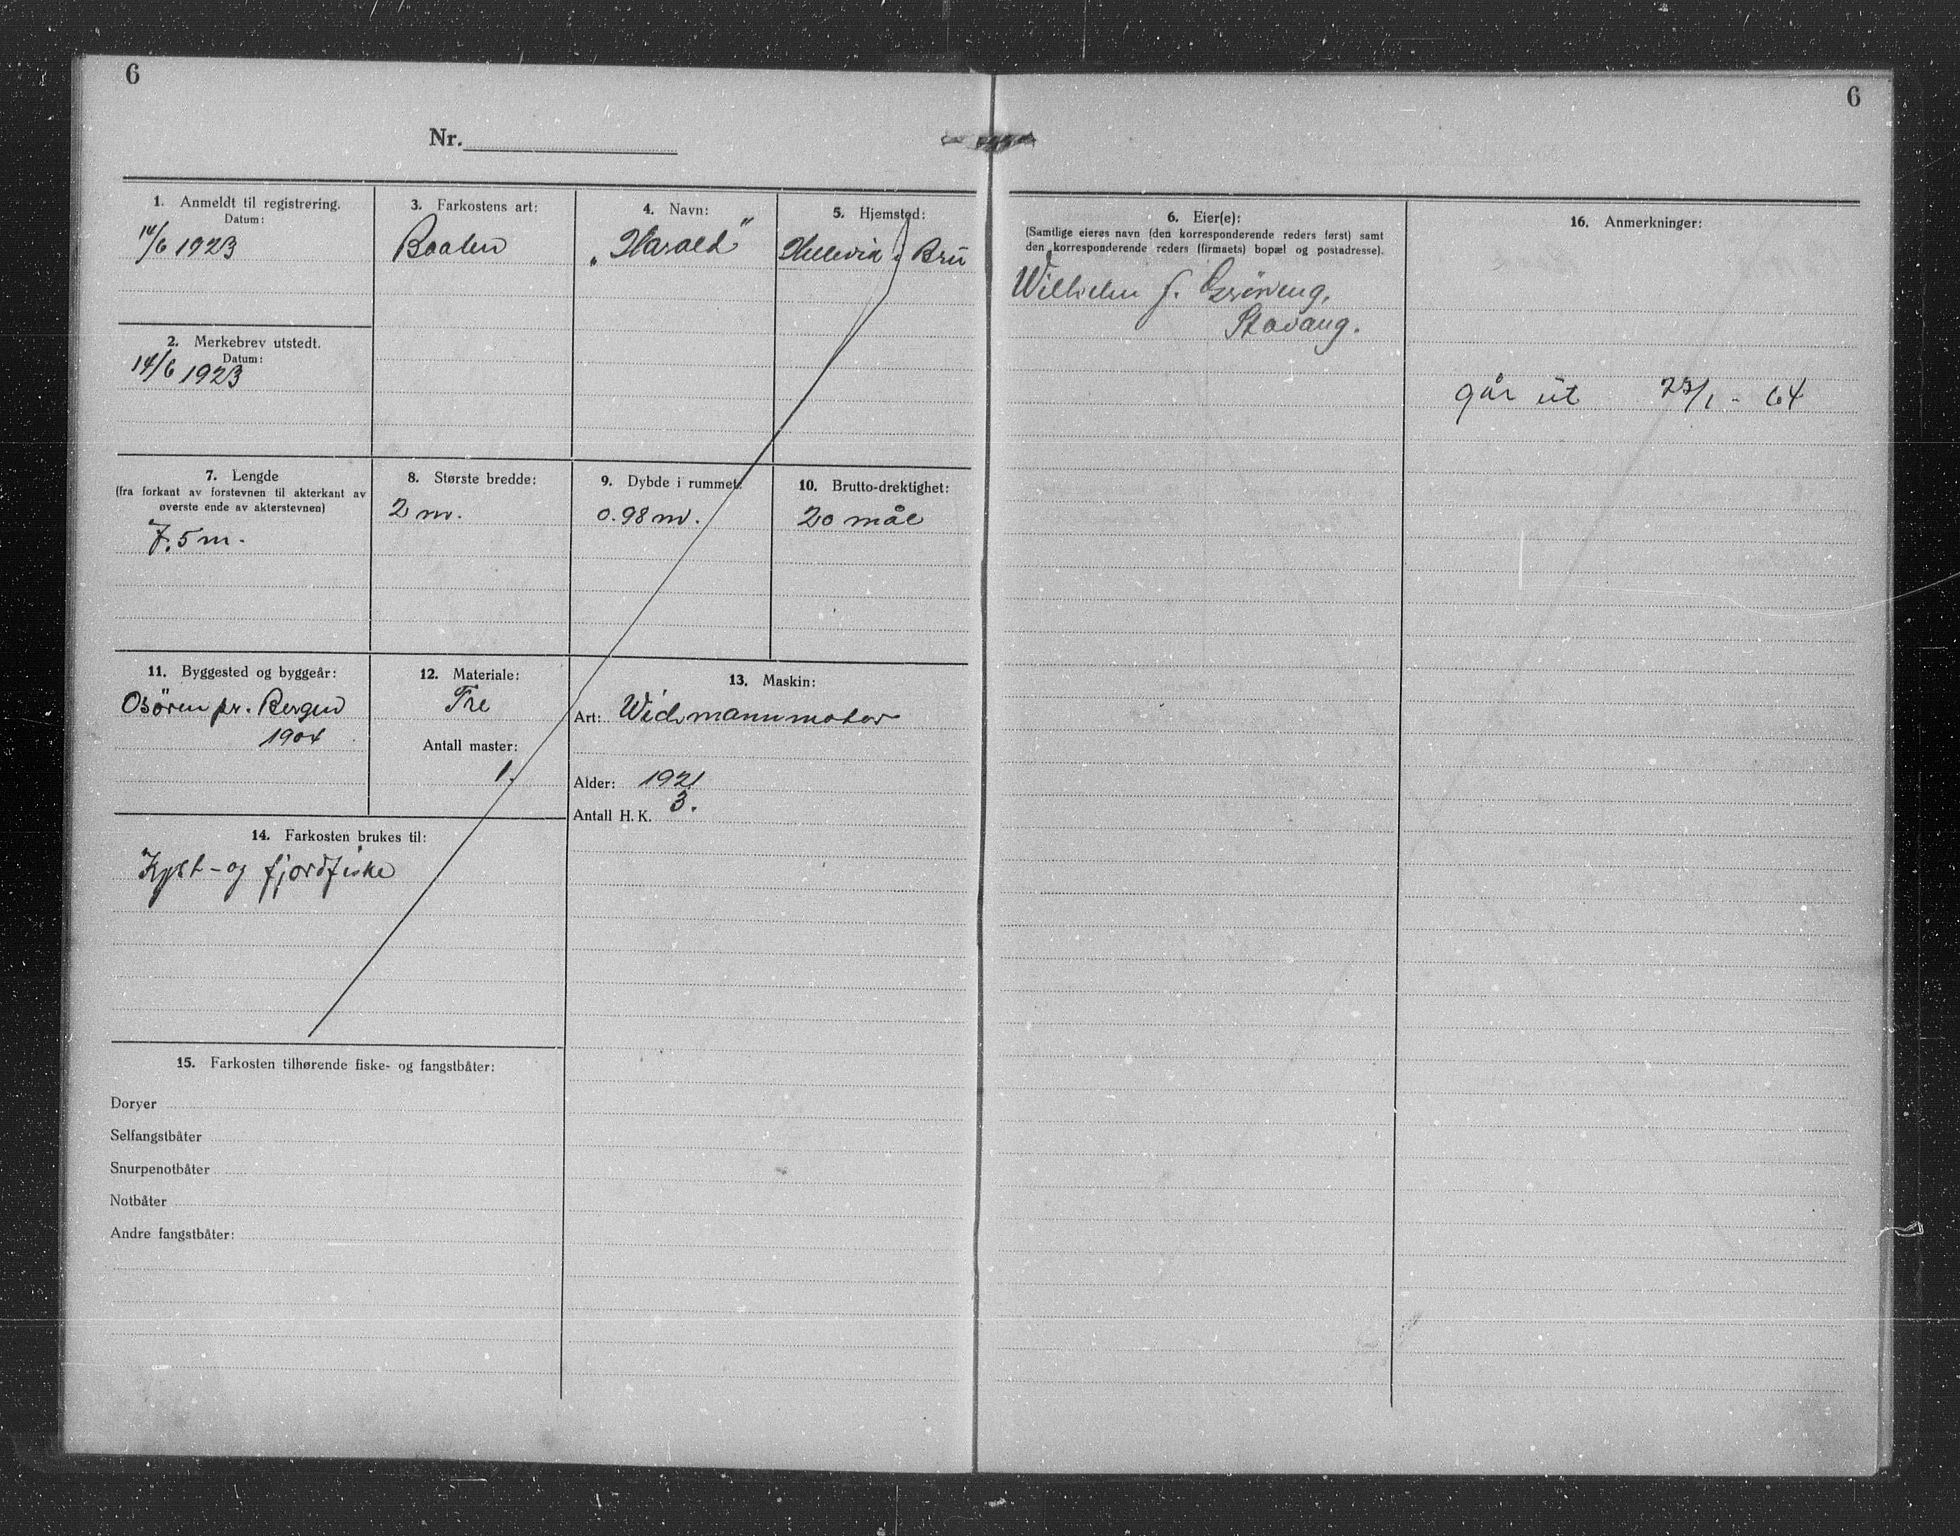 6
6
Nr.
1. Anmeldt til registrering.
Datum:
14/6 1923
2. Merkebrev utstedt.
Datum:
14/6 1923
3. Farkostens art:
4. Navn:
„Harald"
5. Hjemsted:
Bru
6. Eier(e):
(Samtlige eieres navn (den korresponderende reders først) samt
den korresponderende reders (firmaets) bopæl og postadresse).
Wilhelm
Stavang.
16. Anmerkninger:
går ut 23/1 - 64
7. Lengde
(fra forkant av forstevnen til akterkant av
øverste ende av akterstevnen)
7.5 m.
8. Største bredde:
2 m.
9. Dybde i rummet:
0.98 m.
10. Brutto-drektighet:
20 mål
11. Byggested og byggeår:
Osören pr. Bergen
1904
12. Materiale:
Tre
Antall master:
1.
13. Maskin:
Art: Wichmannmotor
Alder: 1921
Antall H. K. 3.
14. Farkosten brukes til:
Kyst- og fjordfiske
15. Farkosten tilhørende fiske- og fangstbåter:
Doryer
Selfangstbåter
Snurpenotbåter
Notbåter
Andre fangstbåter: